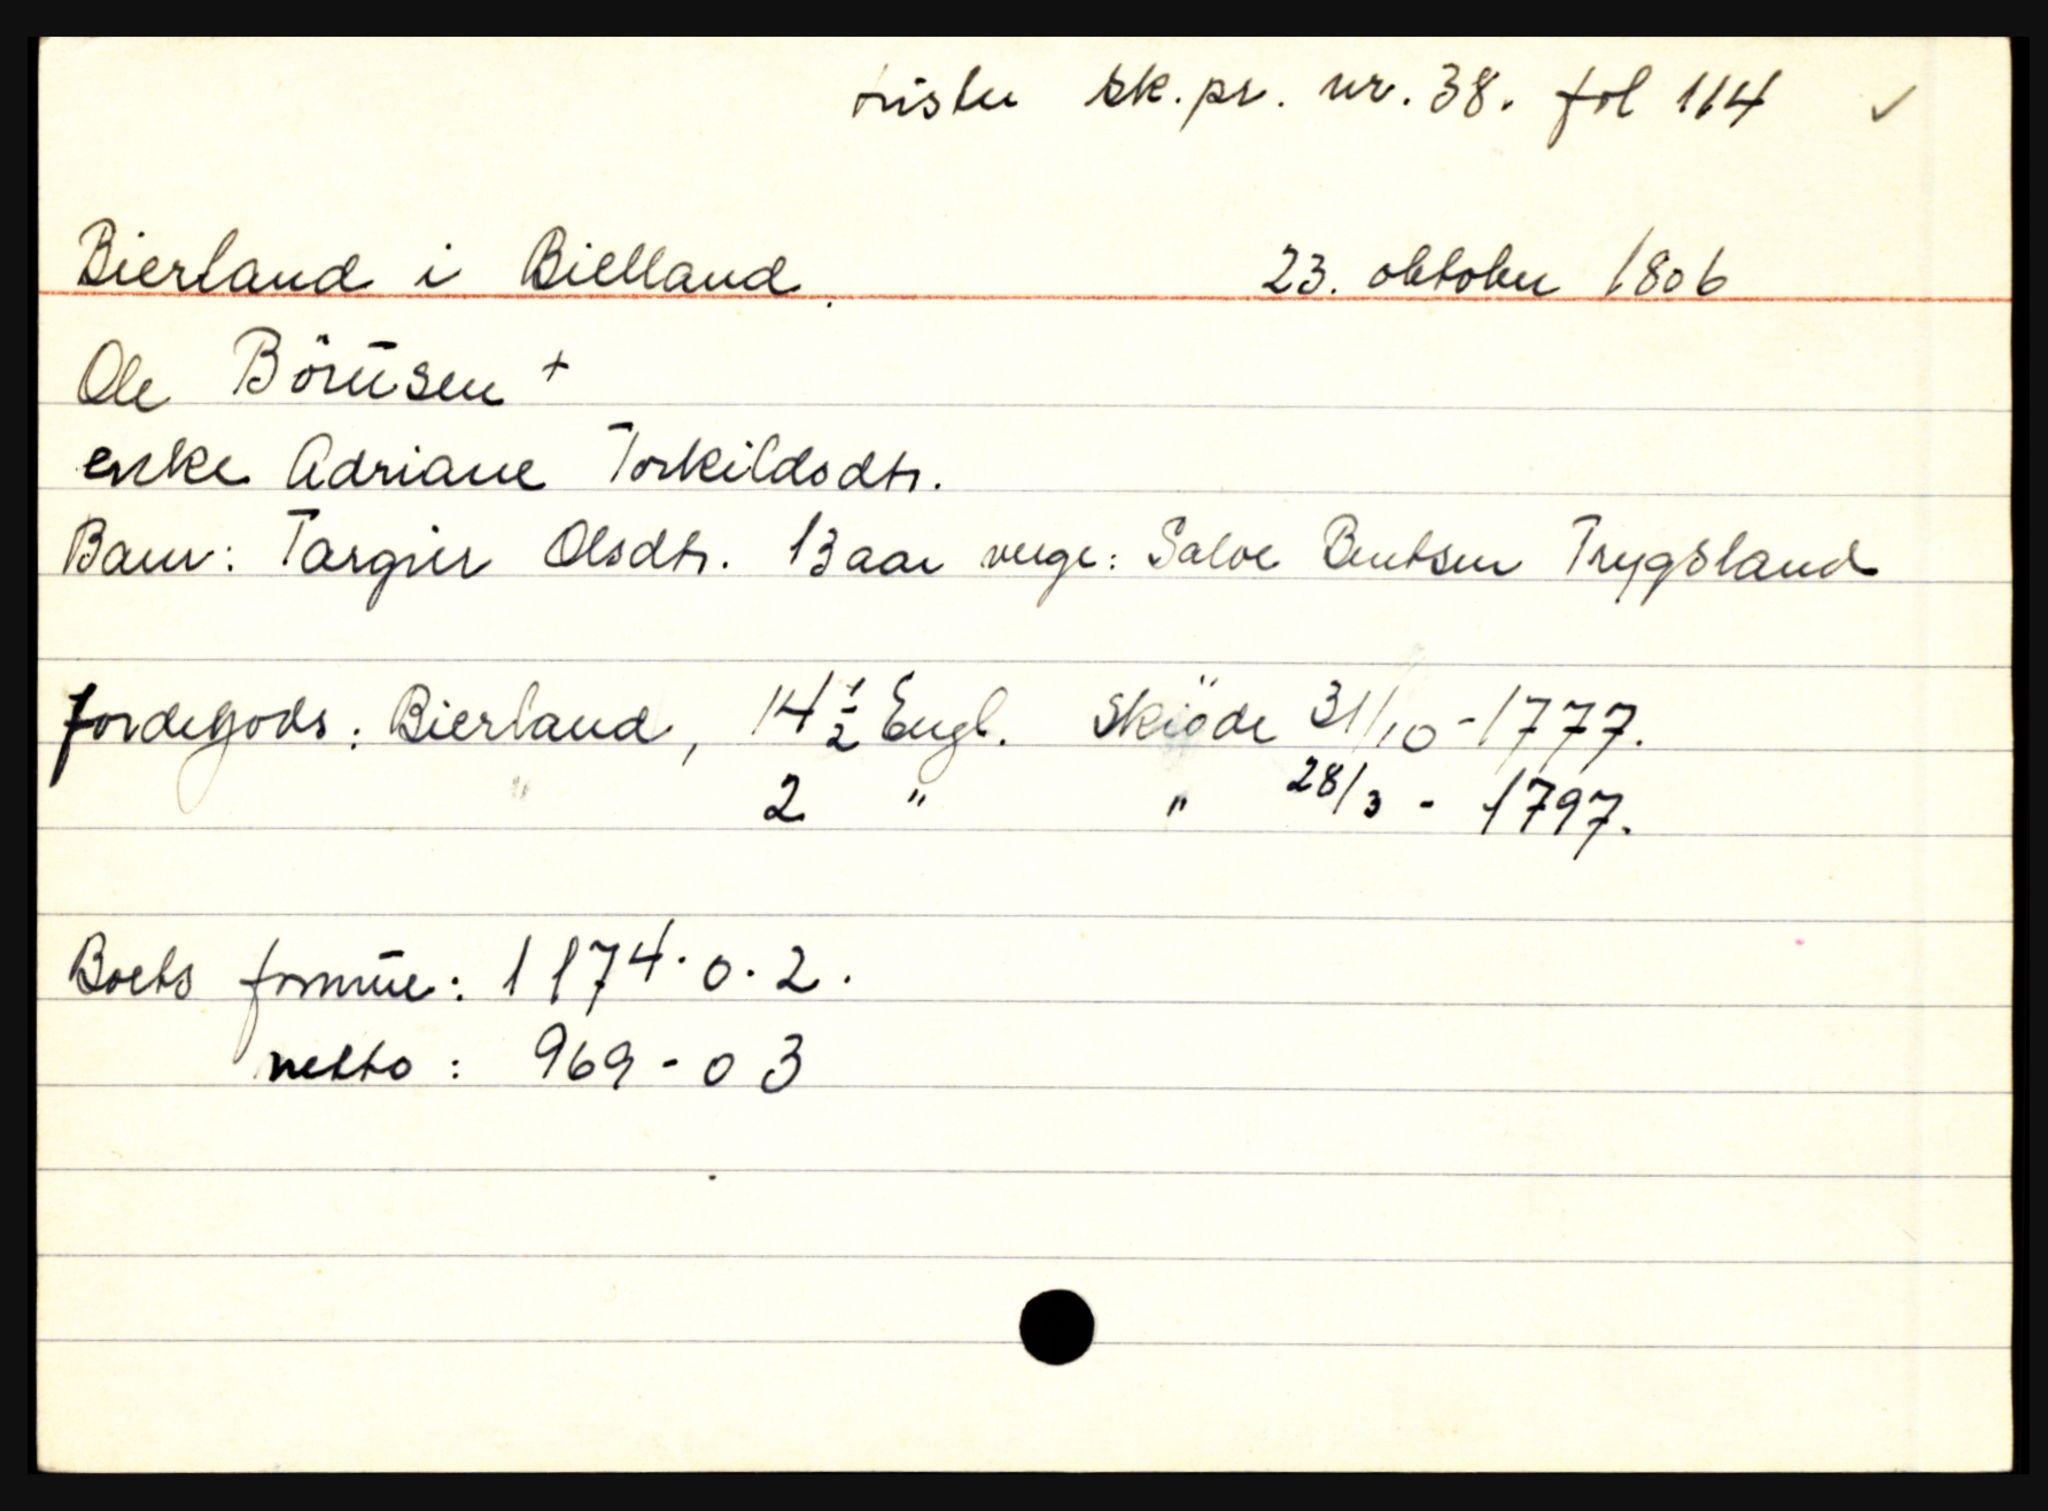 Lister sk.pr. nr. 38. fol 114 ✓
Bierland i Bielland. 23. oktober 1806
Ole Börüsen +
enke Adriane Torkildsdtr.
Barn: Targier Olsdtr. 13 aar verge: Salve Bentsen Trygsland
Jordegods: Bierland, 14 1/2 Engl. Skiöde 31/10 - 1777.
" 2 " " 28/3 - 1797.
Boets formue: 1174.0.2.
netto: 969-0 3